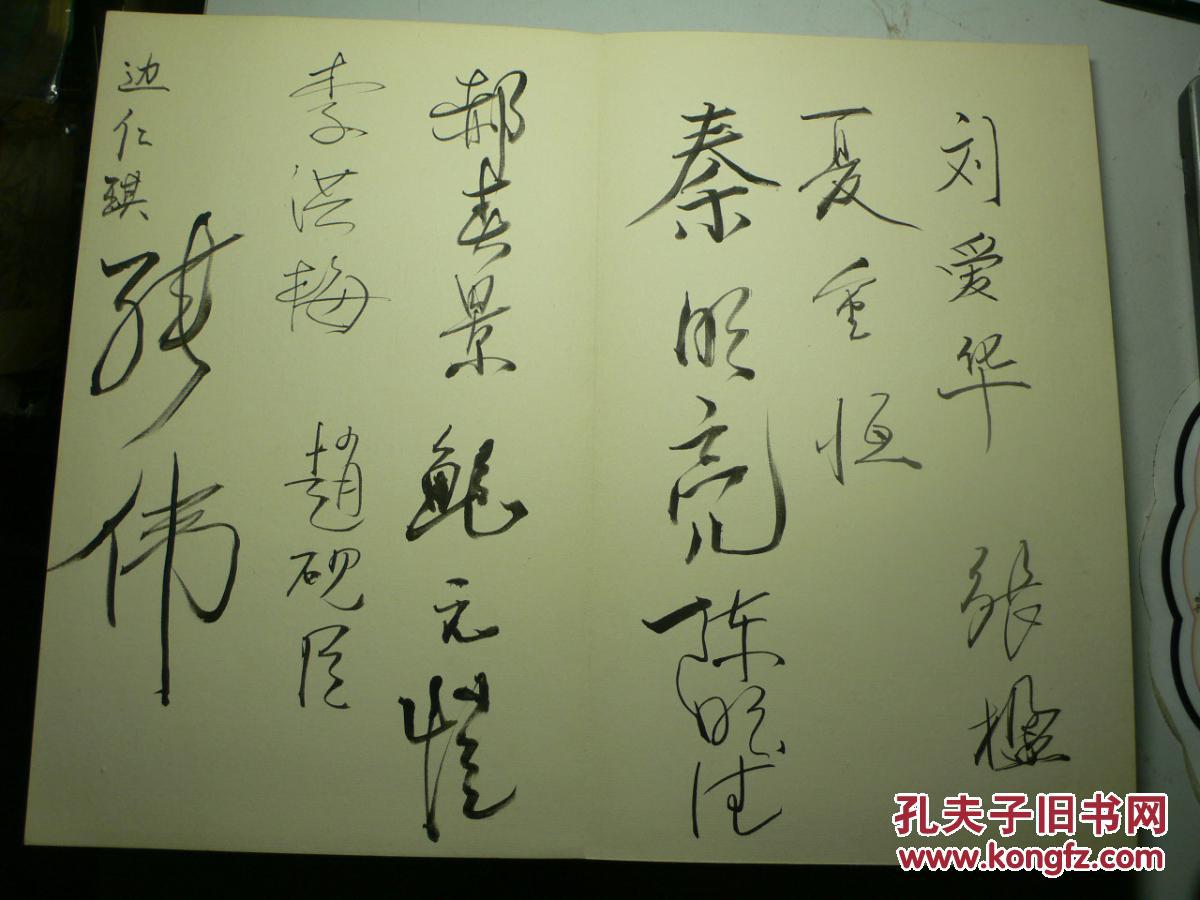 刘爱华
张
夏重恒
秦明亮
陈明德
郝春景
鲍元愷
李洪梅
趙砚臣
边仁琪
张伟
孔夫子旧书网
www.kongfz.com